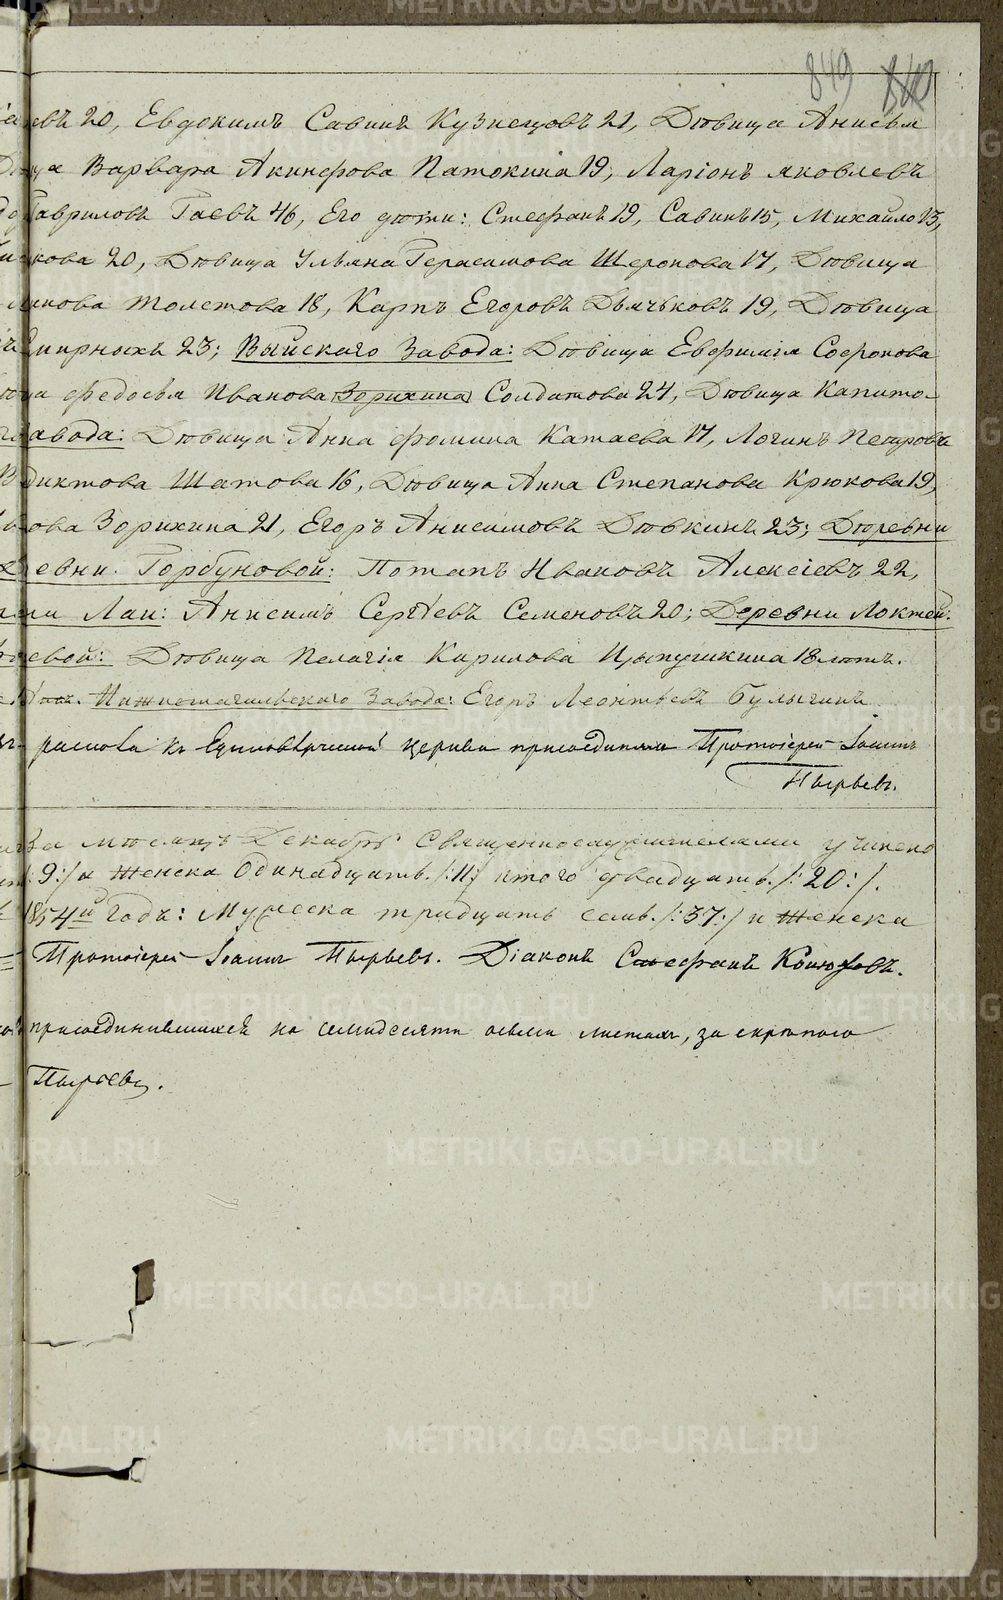 849
евъ 20, Евдокимъ Савинъ Кузнецовъ 21, Дѣвица Анисья
Варвара Акинфова Патокина 19, Ларіонъ Яковлевъ
Гавриловъ Гаевъ 46, Его дѣти: Стефанъ 19, Савинъ 15, Михайло 13,
кова 20, Дѣвица Ульяна Герасимова Шеронова 17, Дѣвица
Толстова 18, Карпъ Егоровъ Дьячьковъ 19, Дѣвица
Смирныхъ 23; Выйскаго Завода: Дѣвица Евфимія Софронова
Федосья Иванова Зорихина Солдатова 24, Дѣвица Капито-
завода: Дѣвица Анна Фомина Катаева 17, Логинъ Петровъ
диктова Шатова 16, Дѣвица Анна Степанова Крюкова 19,
ова Зорихина 21, Егоръ Анисимовъ Дѣвкинъ 23; Деревни
евни Горбуновой: Потапъ Ивановъ Алексіевъ 22,
Лаи: Анисимъ Сергѣевъ Семеновъ 20; Деревни Локтей:
евой: Дѣвица Пелагія Карпова Цыпушкина 18 лѣтъ.
Нижнетагильскаго Завода: Егоръ Леонтьевъ Булыгинъ
раскола къ Единовѣрческой церкви присоединилъ Протоіерей Іоаннъ
Пырьевъ.
За мѣсяцъ Декабрь Священнослужителями учинено
/:9:/ а Женска Одинадцать. /:11:/ итого двадцать. /:20:/.
1854й Годъ: Мужеска тридцать семь. /:37:/ и Женска
Протоіерей Іоаннъ Пырьевъ. Діаконъ Стефанъ Конюховъ.
присоединившихся на семидесяти осьми листахъ, за скрѣпою
Пырьевъ.
METRIKI.GASO-URAL.RU